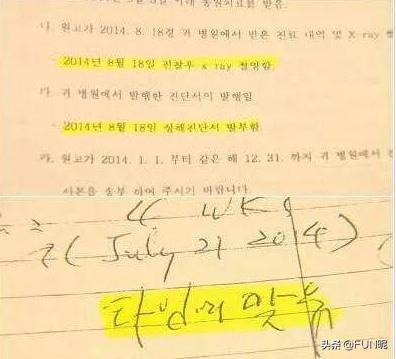 이래 통원치료를 받음.
나. 원고가 2014. 8. 18경 귀 병원에서 받은 진료 내역 및 X-ray
- 2014년 8월 18일 전찰후 x ray 촬영함.
다. 귀 병원에서 발행한 진단서의 발행일
- 2014년 8월 18일 상해진단서 발부함.
라. 원고가 2014. 1. 1. 부터 같은 해 12. 31. 까지 귀 병원에서
사본을 송부 하여 주시기 바랍니다.
4 WKs
(July 21 2014)
타병원 맞음
头条 @FUN呢